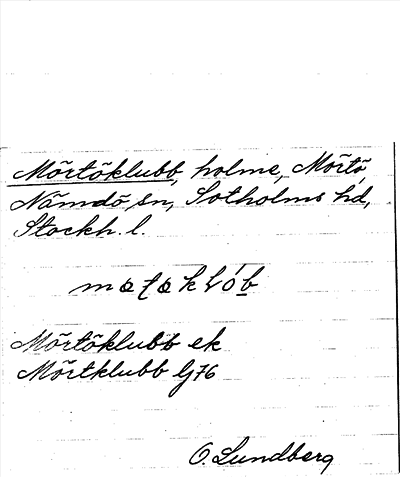 Mörtöklubb, holme, Mörtö,
Nämdö sn, Sotholms hd,
Stockh. l.
Mörtöklubb ek
Mörtklubb Gj76
O. Lundberg